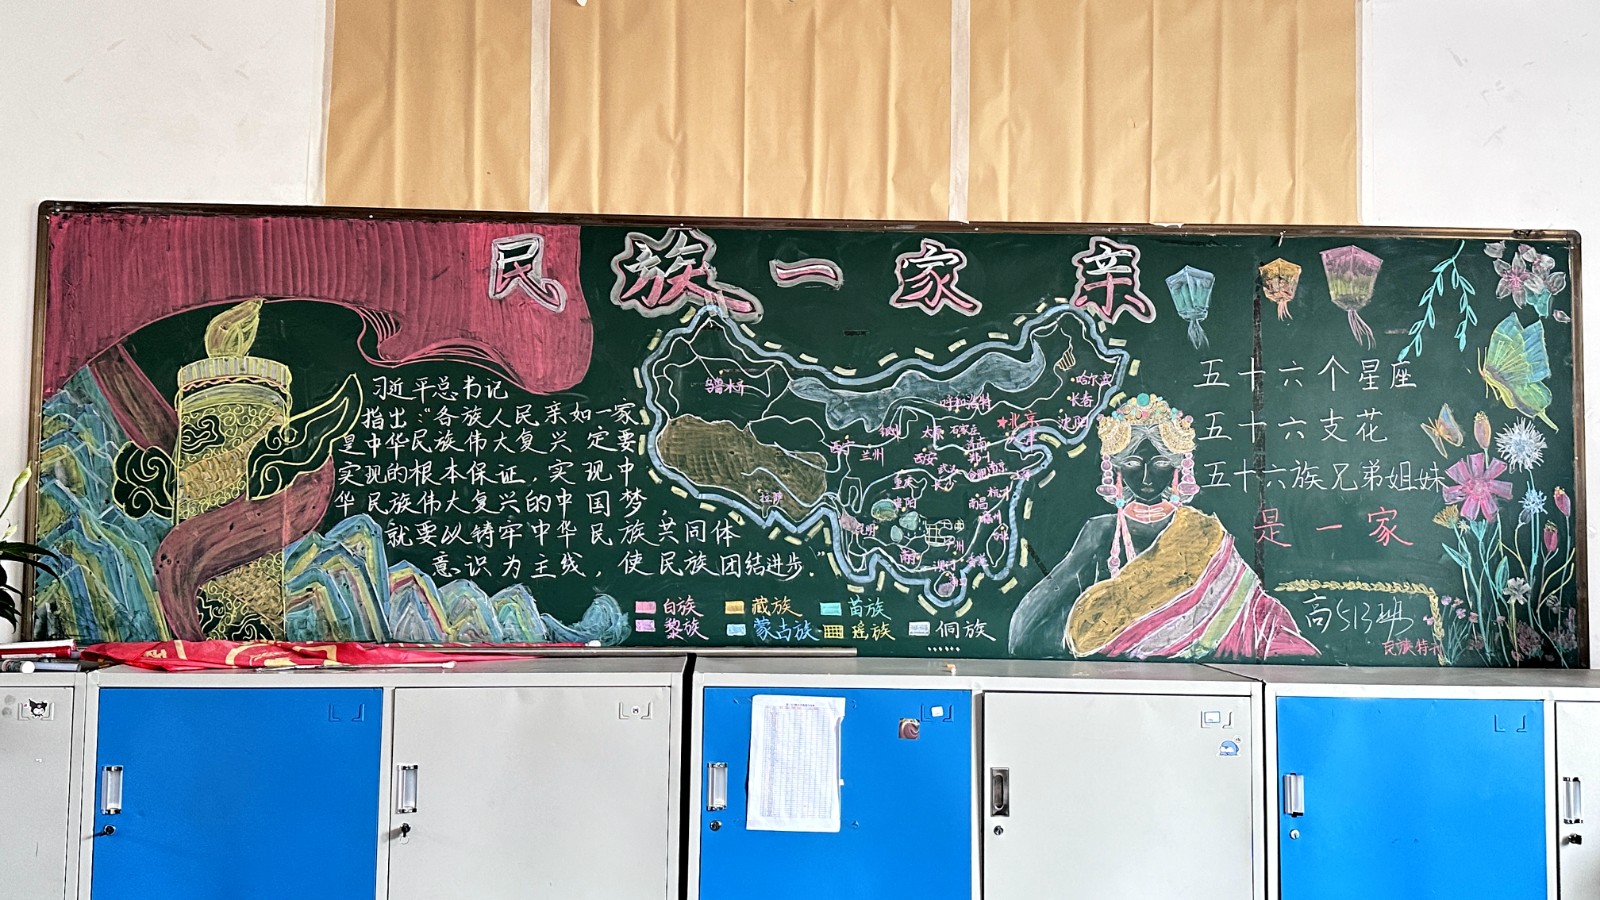 民族一家亲
习近平总书记
指出:“各族人民亲如一家,
是中华民族伟大复兴 定要
实现的根本保证,实现中
华民族伟大复兴的中国梦,
就要以铸牢中华民族共同体
意识为主线,使民族团结进步.”
乌鲁木齐
哈尔滨
长春
沈阳
呼和浩特
★北京
天津
银川
太原
石家庄
济南
兰州
西安
武汉
南京
重庆
长沙
杭州
拉萨
贵阳
南昌
福州
昆明
台北
广州
南宁
香港
澳门
白族
藏族
苗族
黎族
蒙古族
瑶族
侗族
......
五十六个星座
五十六支花
五十六族兄弟姐妹
是一家
高513班
民族特刊